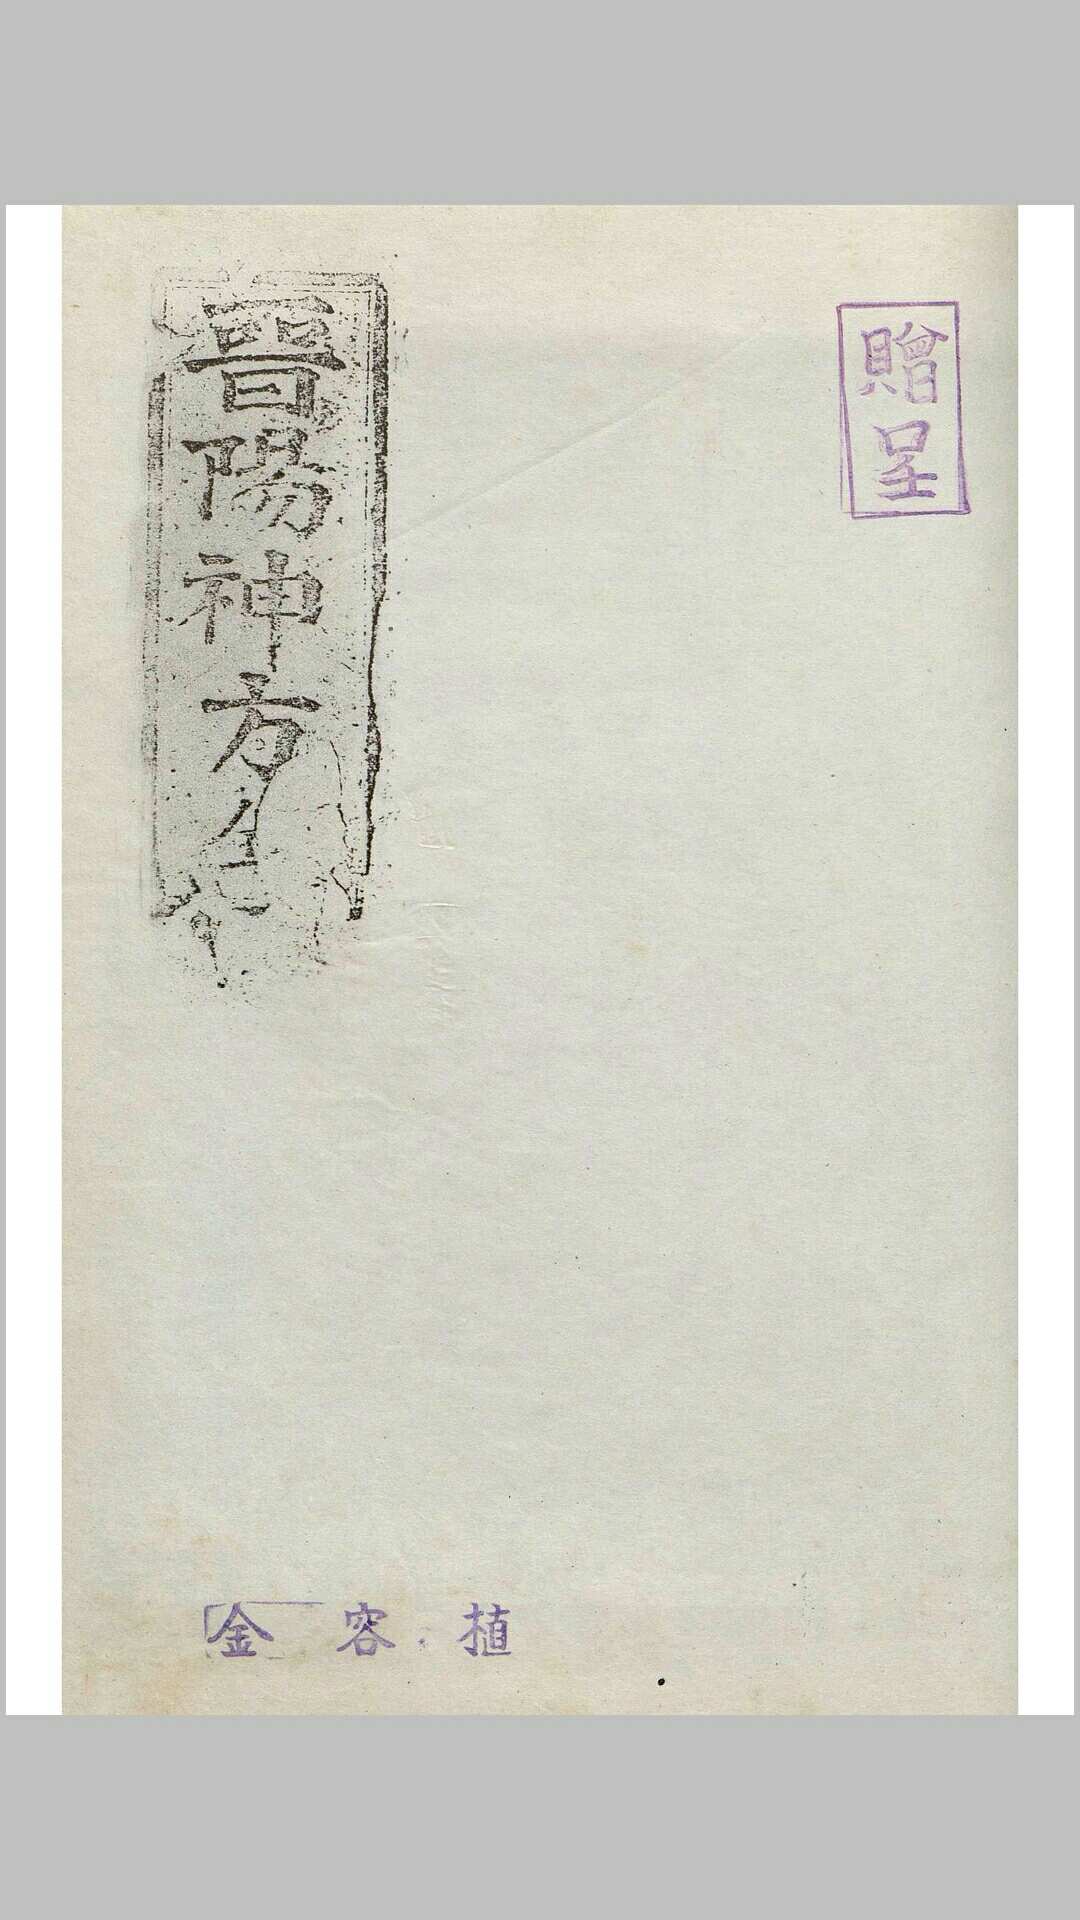 贈呈
晋陽神方
金容植